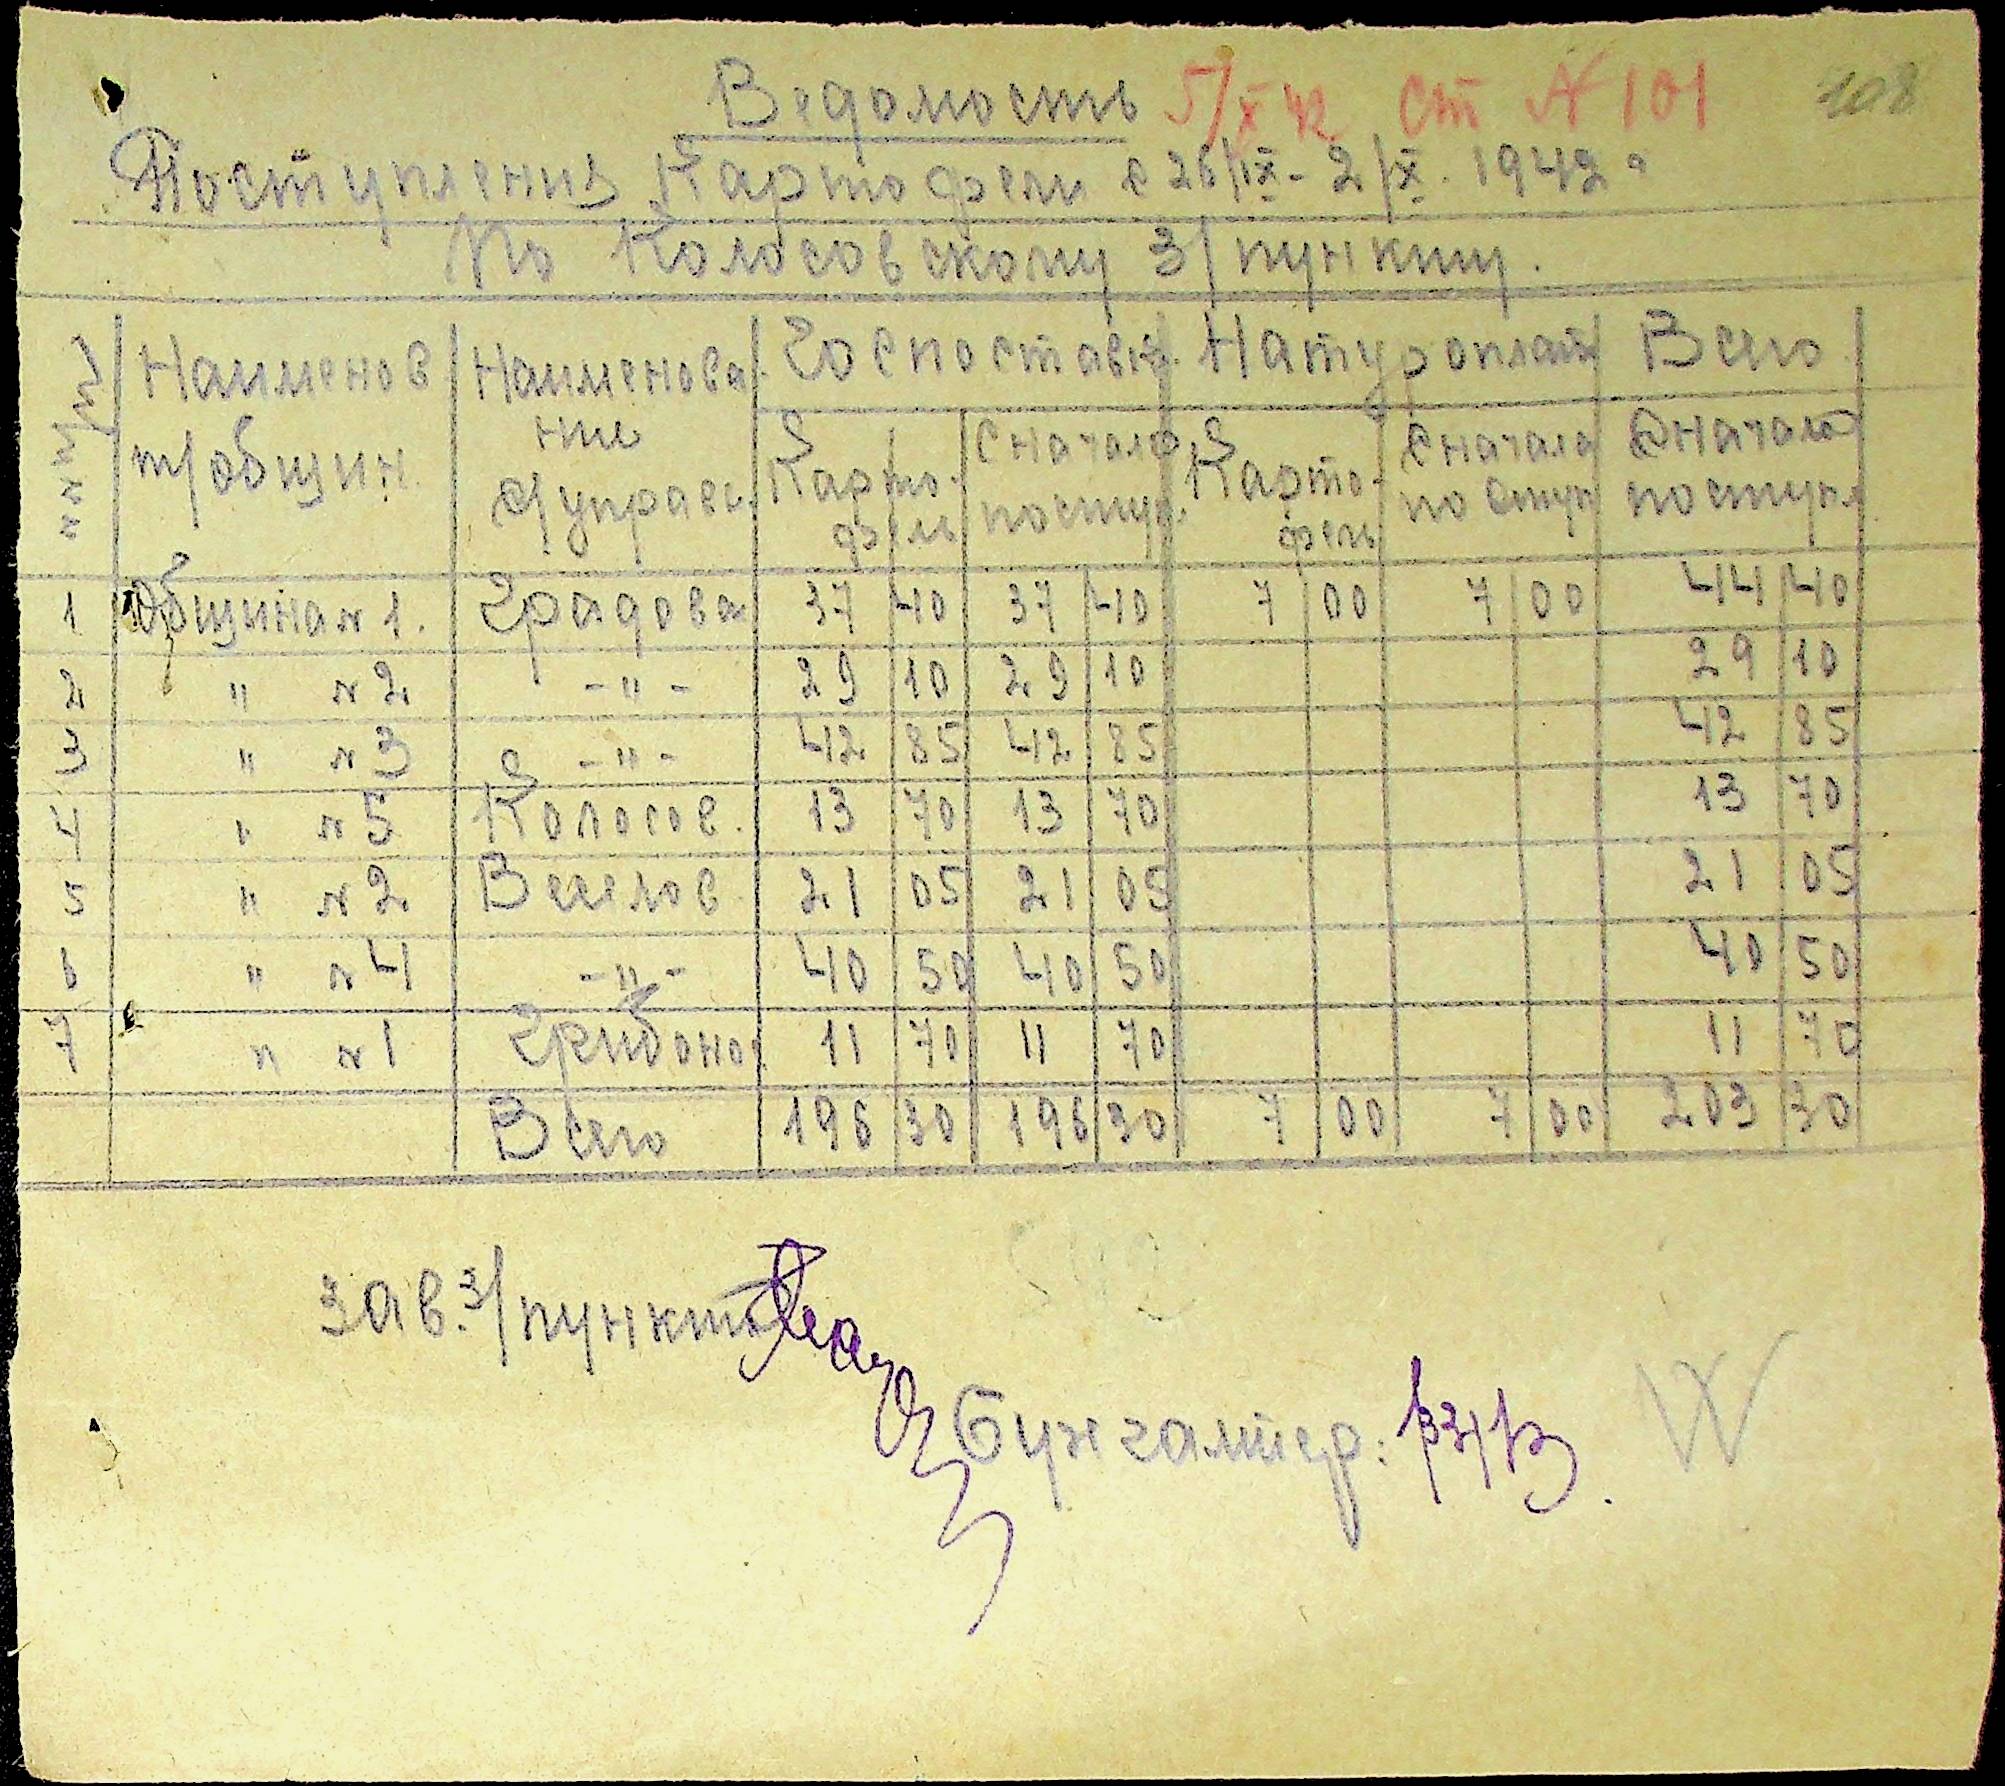 Ведомость 5/X 42 ст № 101 108
Поступления Картофеля с 26/IX - 2/X. 1942 г
По Колосовскому З/пункту.
№ № п/п Наименов Наименова Госпоставк. Натуроплат Всего
т/общин. ние Карто- Сначала Карто- Сначала Сначала
с/управ. фель поступ. фель поступ поступл
1 Община № 1. Градова 37 40 37 40 7 00 7 00 44 40
2 " № 2 - " - 29 10 29 10 29 10
3 " № 3 - " - 42 85 42 85 42 85
4 " № 5 Колосов. 13 70 13 70 13 70
5 " № 2 Веселов 21 05 21 05 21 05
6 " № 4 - " - 40 50 40 50 40 50
7 " № 1 Грибоно. 11 70 11 70 11 70
Всего 196 30 196 30 7 00 7 00 203 30
Зав. З/пункта
Бухгалтер: